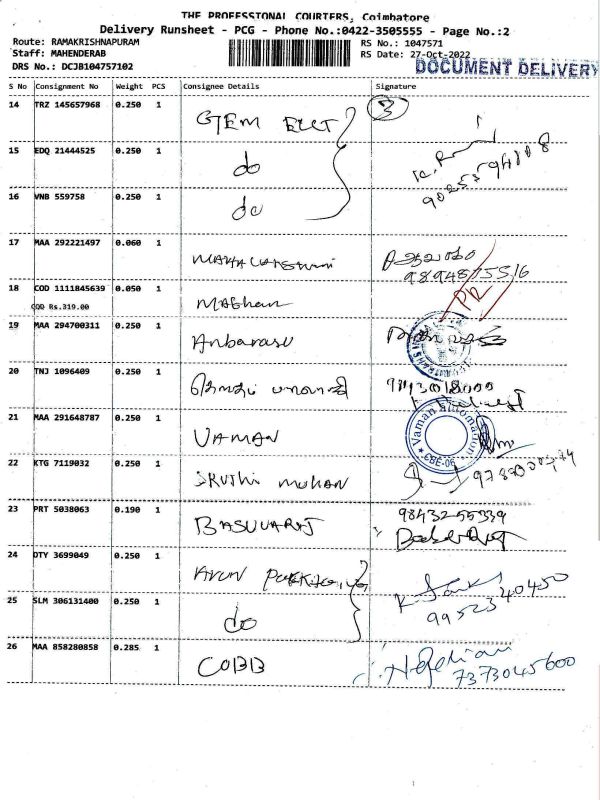 THE PROFESSIONAL COURIERS, Coimbatore
Delivery Runsheet - PCG - Phone No.:0422-3505555 - Page No.:2
Route: RAMAKRISHNAPURAM
RS No.: 1047571
Staff: MAHENDERAB
RS Date: 27-Oct-2022
DRS No.: DCJB104757102
DOCUMENT DELIVERY
S No Consignment No Weight PCS Consignee Details Signature
3
14 TRZ 145657968 0.250 1 GEM ELCT
15 EDQ 21444525 0.250 1 do
16 VNB 559758 0.250 1 do
17 MAA 292221497 0.060 1
18 COD 1111845639 0.050 1 Maghan
COD Rs.319.00
19 MAA 294700311 0.250 1 Anbarasu
20 TNJ 1096409 0.250 1
21 MAA 291648787 0.250 1 VAMAN
Vaman Automation
CBE-06
22 KTG 7119032 0.250 1 SRUTHI MOHAN
23 PRT 5038063 0.190 1 BASUVARAJ 98432-55339
24 DTY 3699049 0.250 1 Arun
25 SLM 306131400 0.250 1 do 99523 40450
26 MAA 858280858 0.285 1 COBB 7373045600